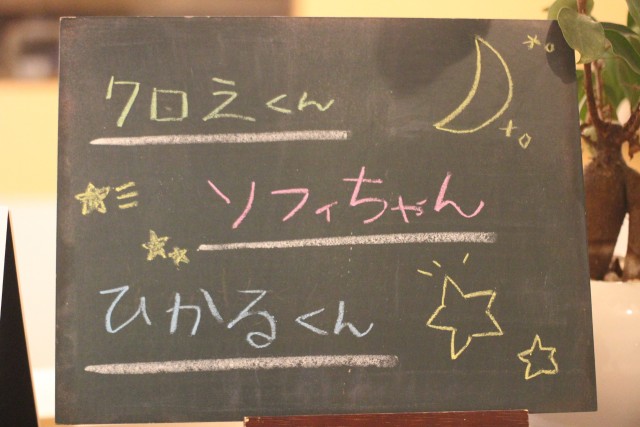 クロえくん
ソフィちゃん
ひかるくん